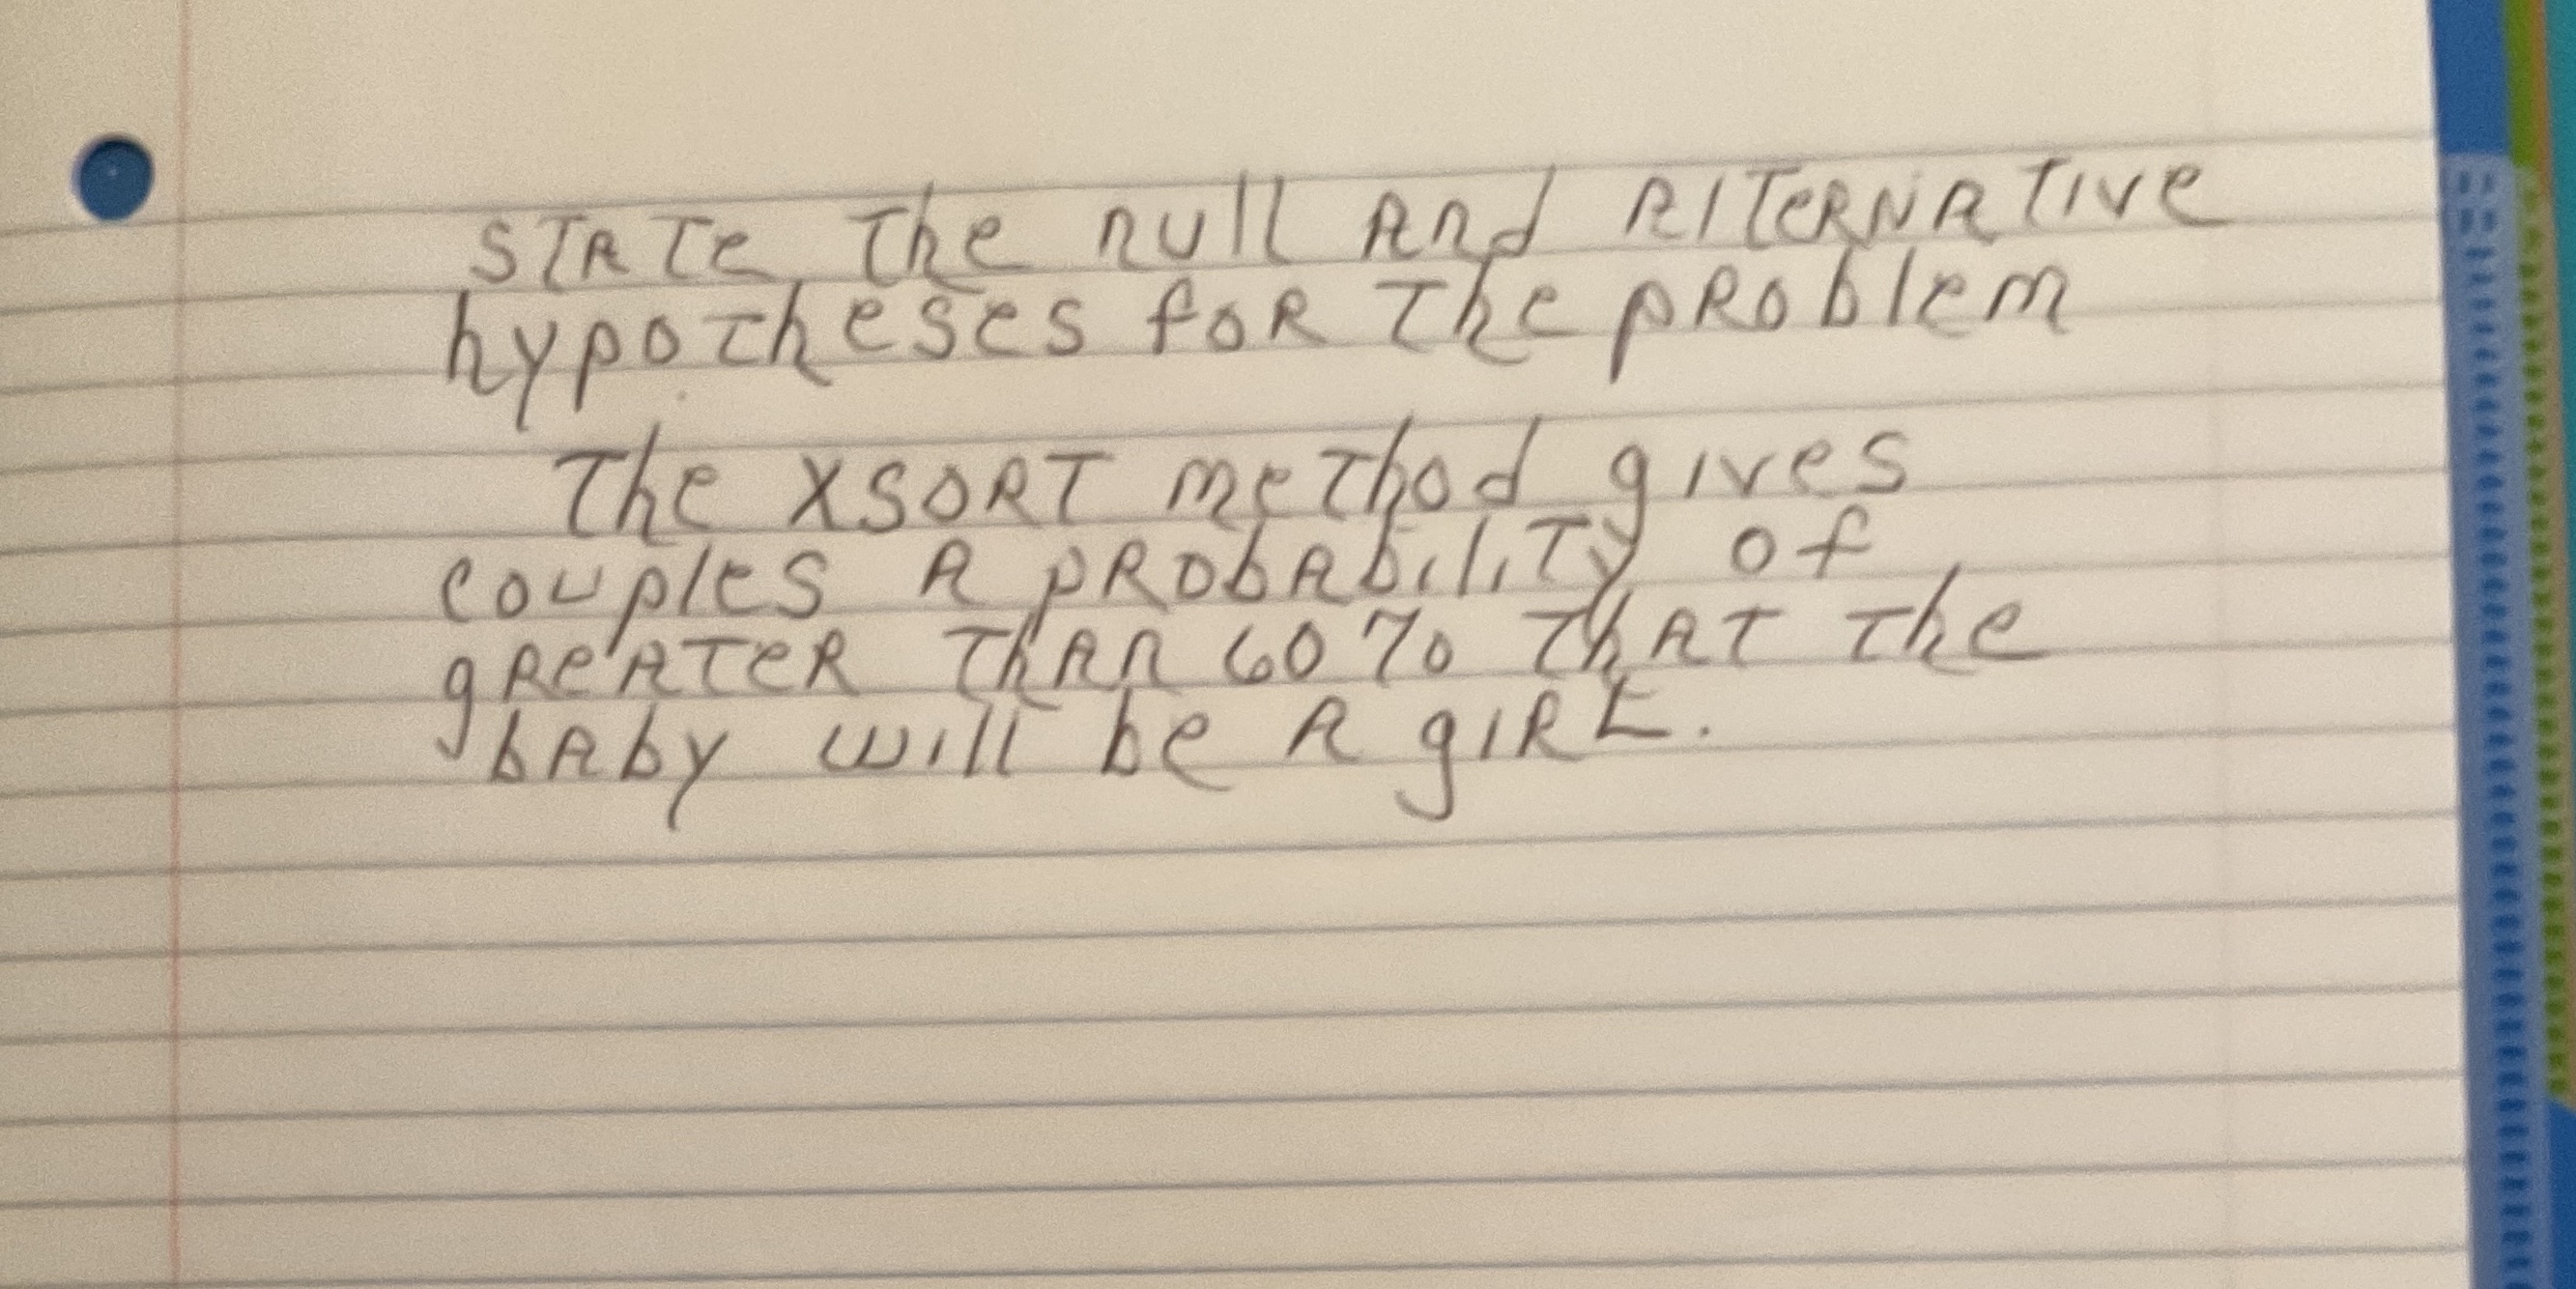 STATe The null And AlTeRNATive
hypotheses foR The pRoblem
The XSORT meThod gives
couples A pRobAbiliTy of
gReATeR ThAn 60% ThAT The
bAby will be A giRL.